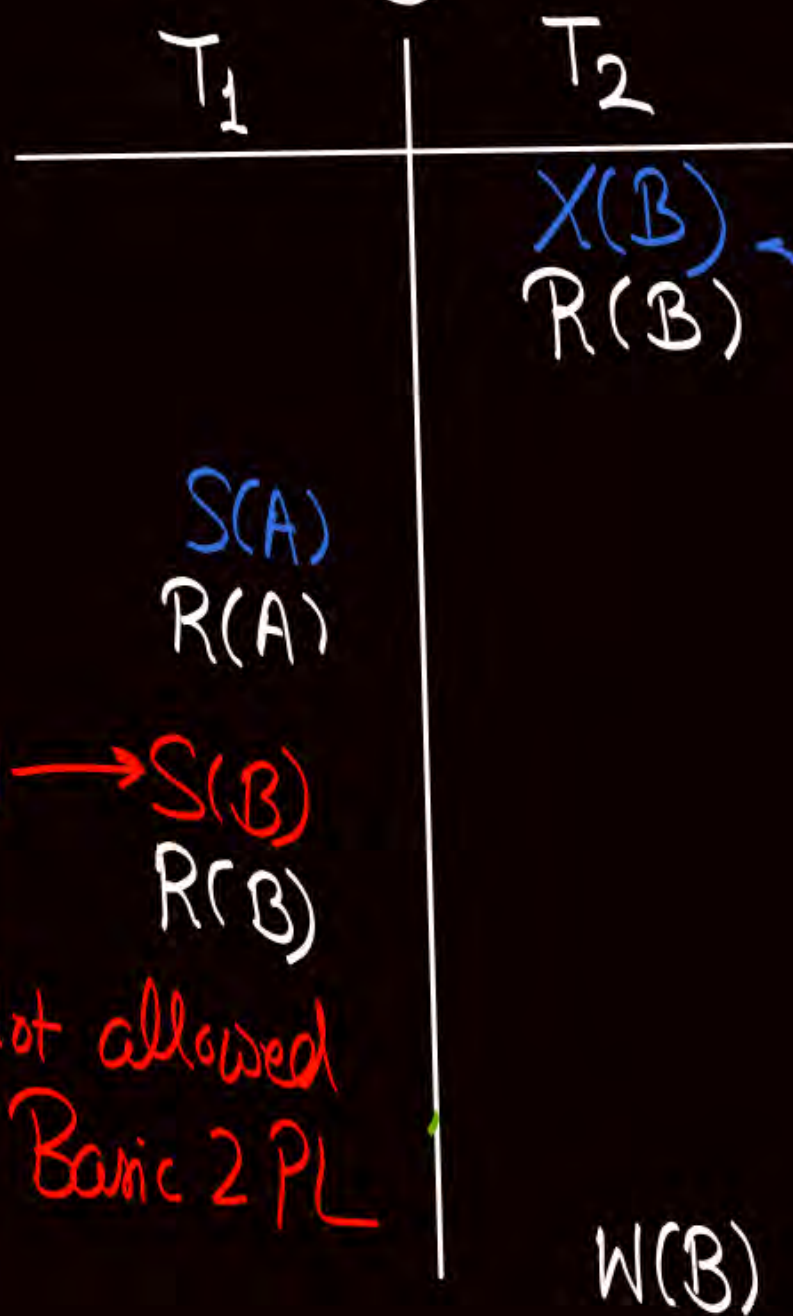 T1 T2
X(B)
R(B)
S(A)
R(A)
S(B)
R(B)
ot allowed
Basic 2 PL
W(B)